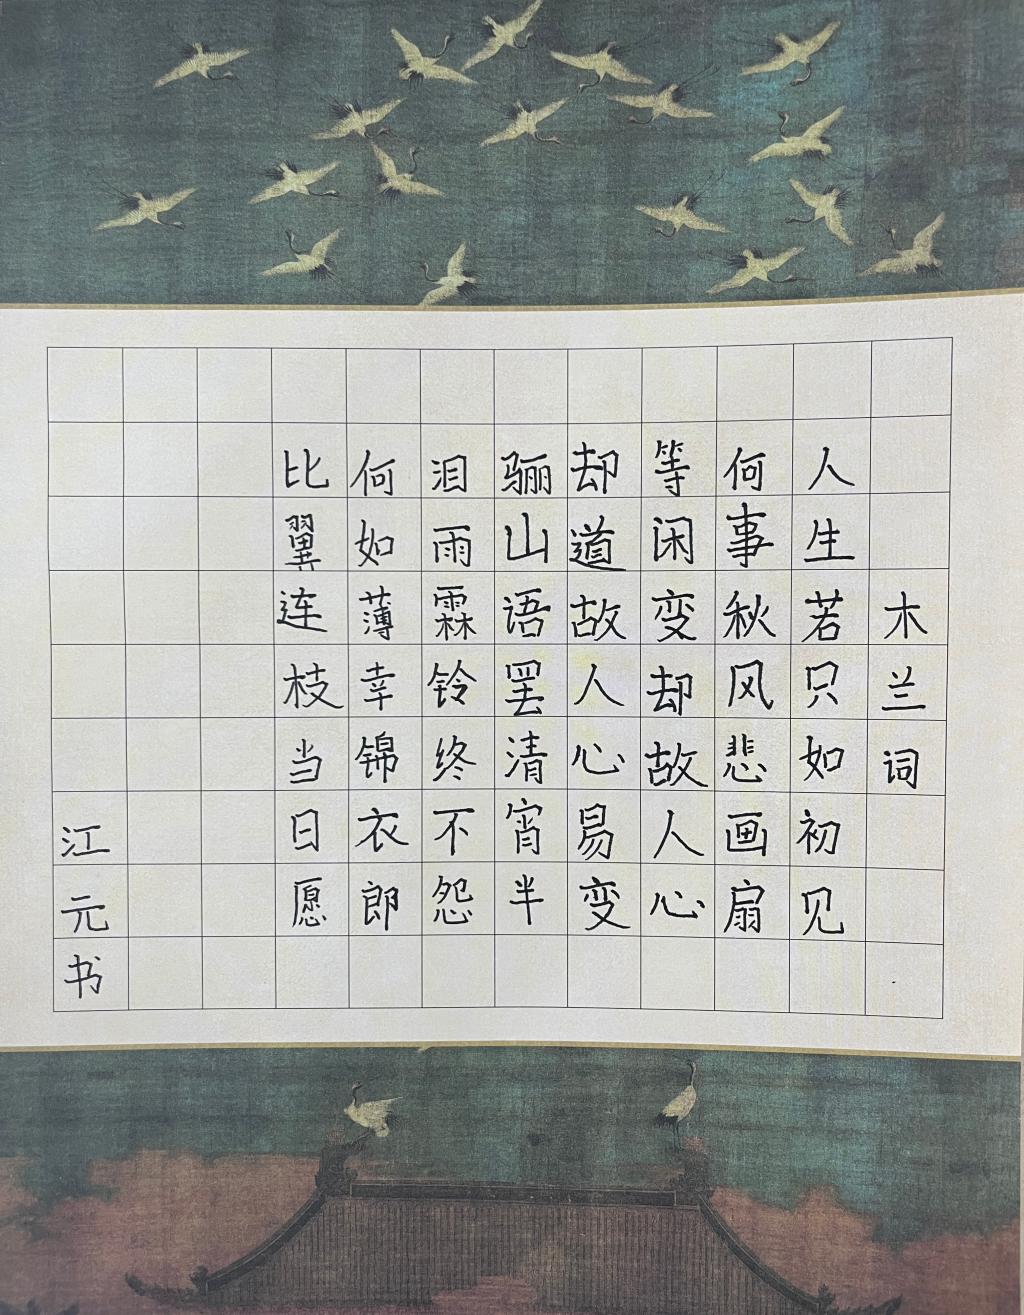 木兰词
人生若只如初见
何事秋风悲画扇
等闲变却故人心
却道故人心易变
骊山语罢清宵半
泪雨霖铃终不怨
何如薄幸锦衣郎
比翼连枝当日愿
江元书